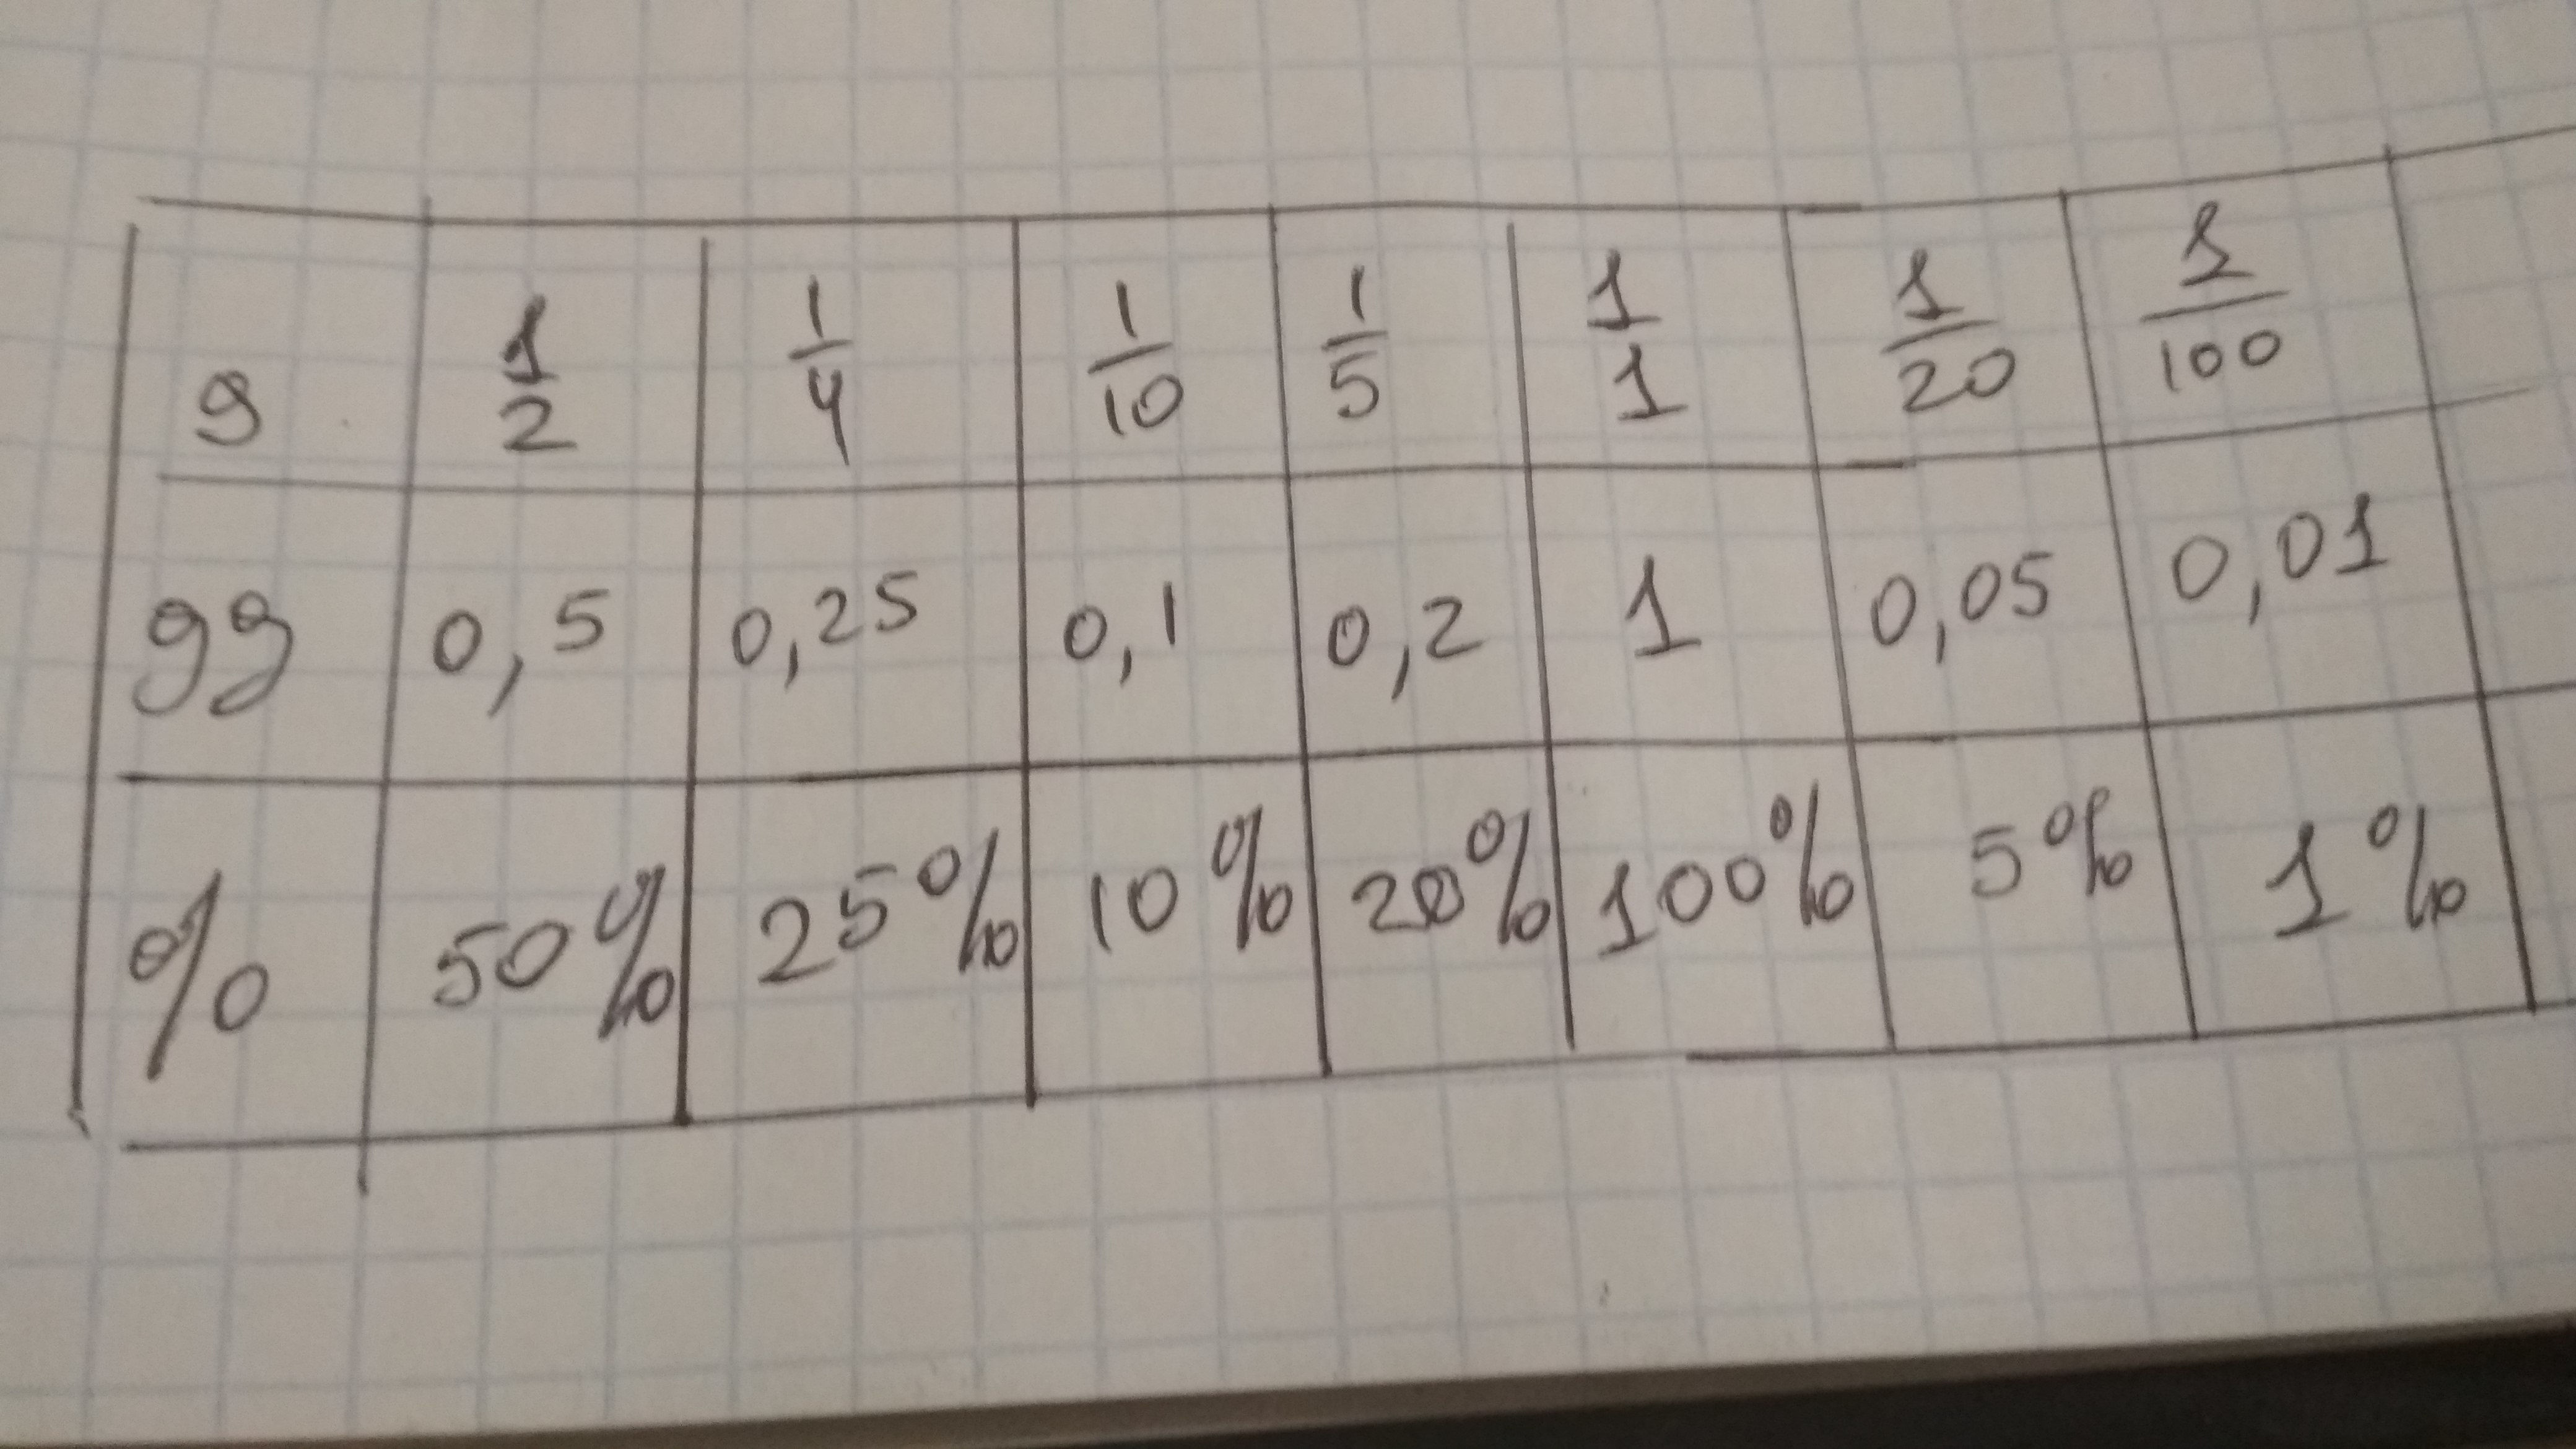 д 1/2 1/4 1/10 1/5 1/1 1/20 1/100
дд 0,5 0,25 0,1 0,2 1 0,05 0,01
% 50% 25% 10% 20% 100% 5% 1%